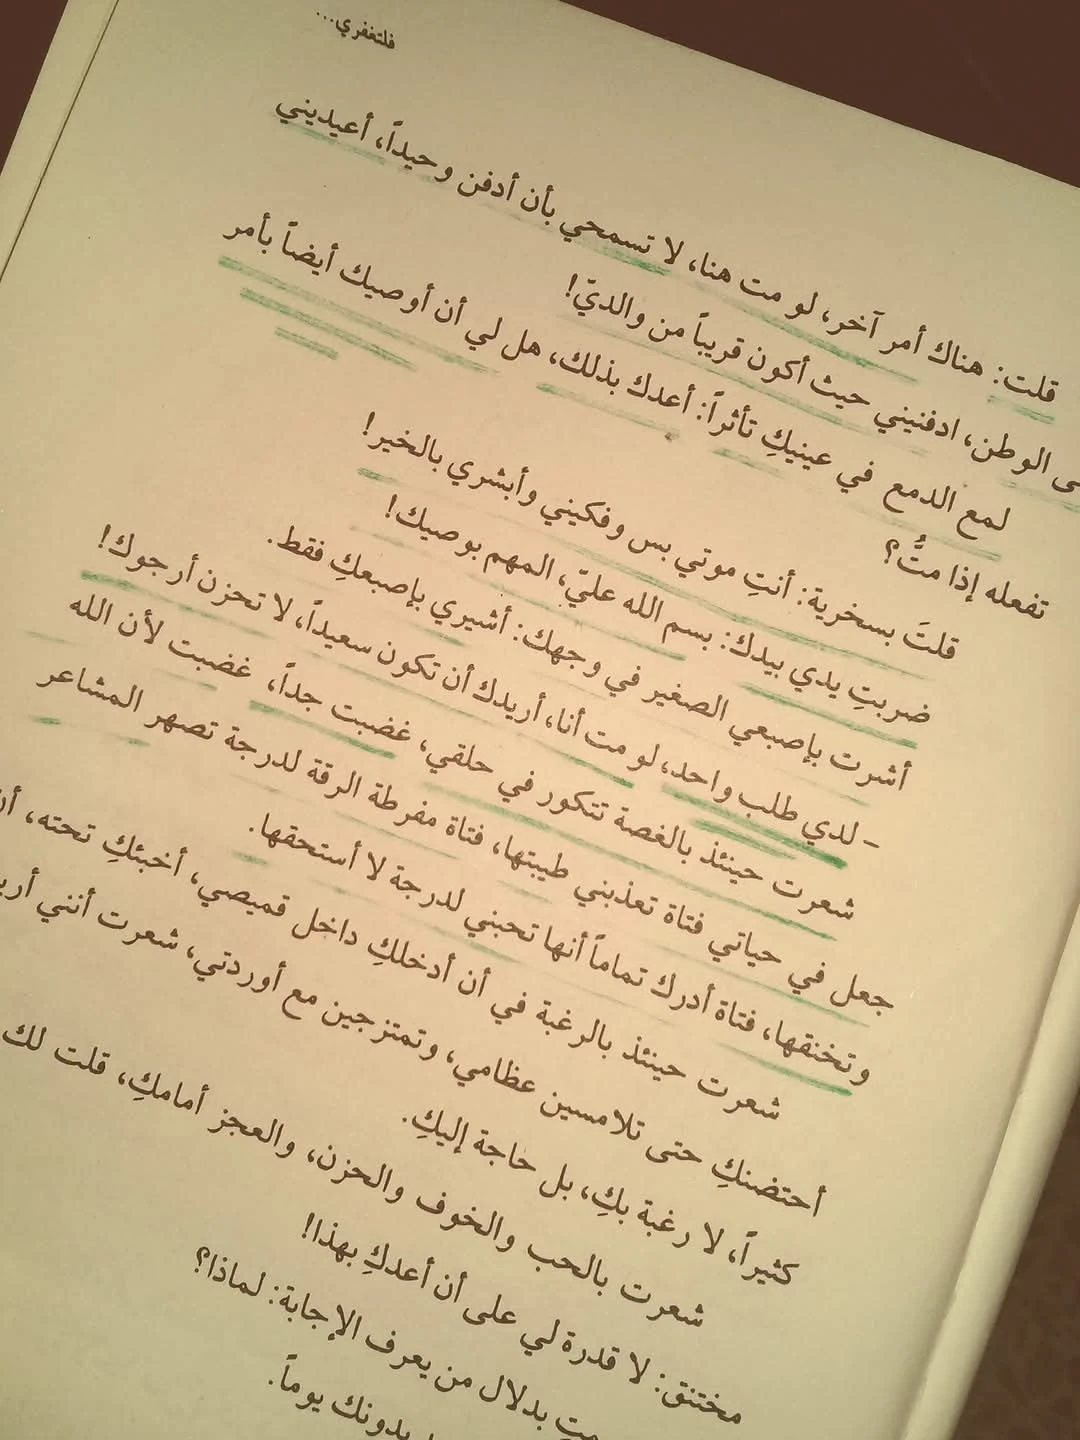 فلتغفري...
قلت: هناك أمر آخر، لو مت هنا، لا تسمحي بأن أدفن وحيداً، أعيديني
الوطن، ادفنيني حيث أكون قريباً من والديّ!
لمع الدمع في عينيكِ تأثراً: أعدك بذلك، هل لي أن أوصيك أيضاً بأمر
تفعله إذا متُّ؟
قلتَ بسخرية: أنتِ موتي بس وفكيني وأبشري بالخير!
ضربتِ يدي بيدك: بسم الله عليّ، المهم بوصيك!
أشرت بإصبعي الصغير في وجهك: أشيري بإصبعكِ فقط.
- لدي طلب واحد، لو مت أنا، أريدك أن تكون سعيداً، لا تحزن أرجوك!
شعرت حينئذ بالغصة تتكور في حلقي، غضبت جداً، غضبت لأن الله
جعل في حياتي فتاة تعذبني طيبتها، فتاة مفرطة الرقة لدرجة تصهر المشاعر
وتخنقها، فتاة أدرك تماماً أنها تحبني لدرجة لا أستحقها.
شعرت حينئذ بالرغبة في أن أدخلكِ داخل قميصي، أخبئكِ تحته، أن
أحتضنكِ حتى تلامسين عظامي، وتمتزجين مع أوردتي، شعرت أنني
كثيراً، لا رغبة بكِ، بل حاجة إليكِ.
شعرت بالحب والخوف والحزن، والعجز أمامكِ، قلت لك
مختنق: لا قدرة لي على أن أعدكِ بهذا!
بدلال من يعرف الإجابة: لماذا؟
بدونك يوماً.